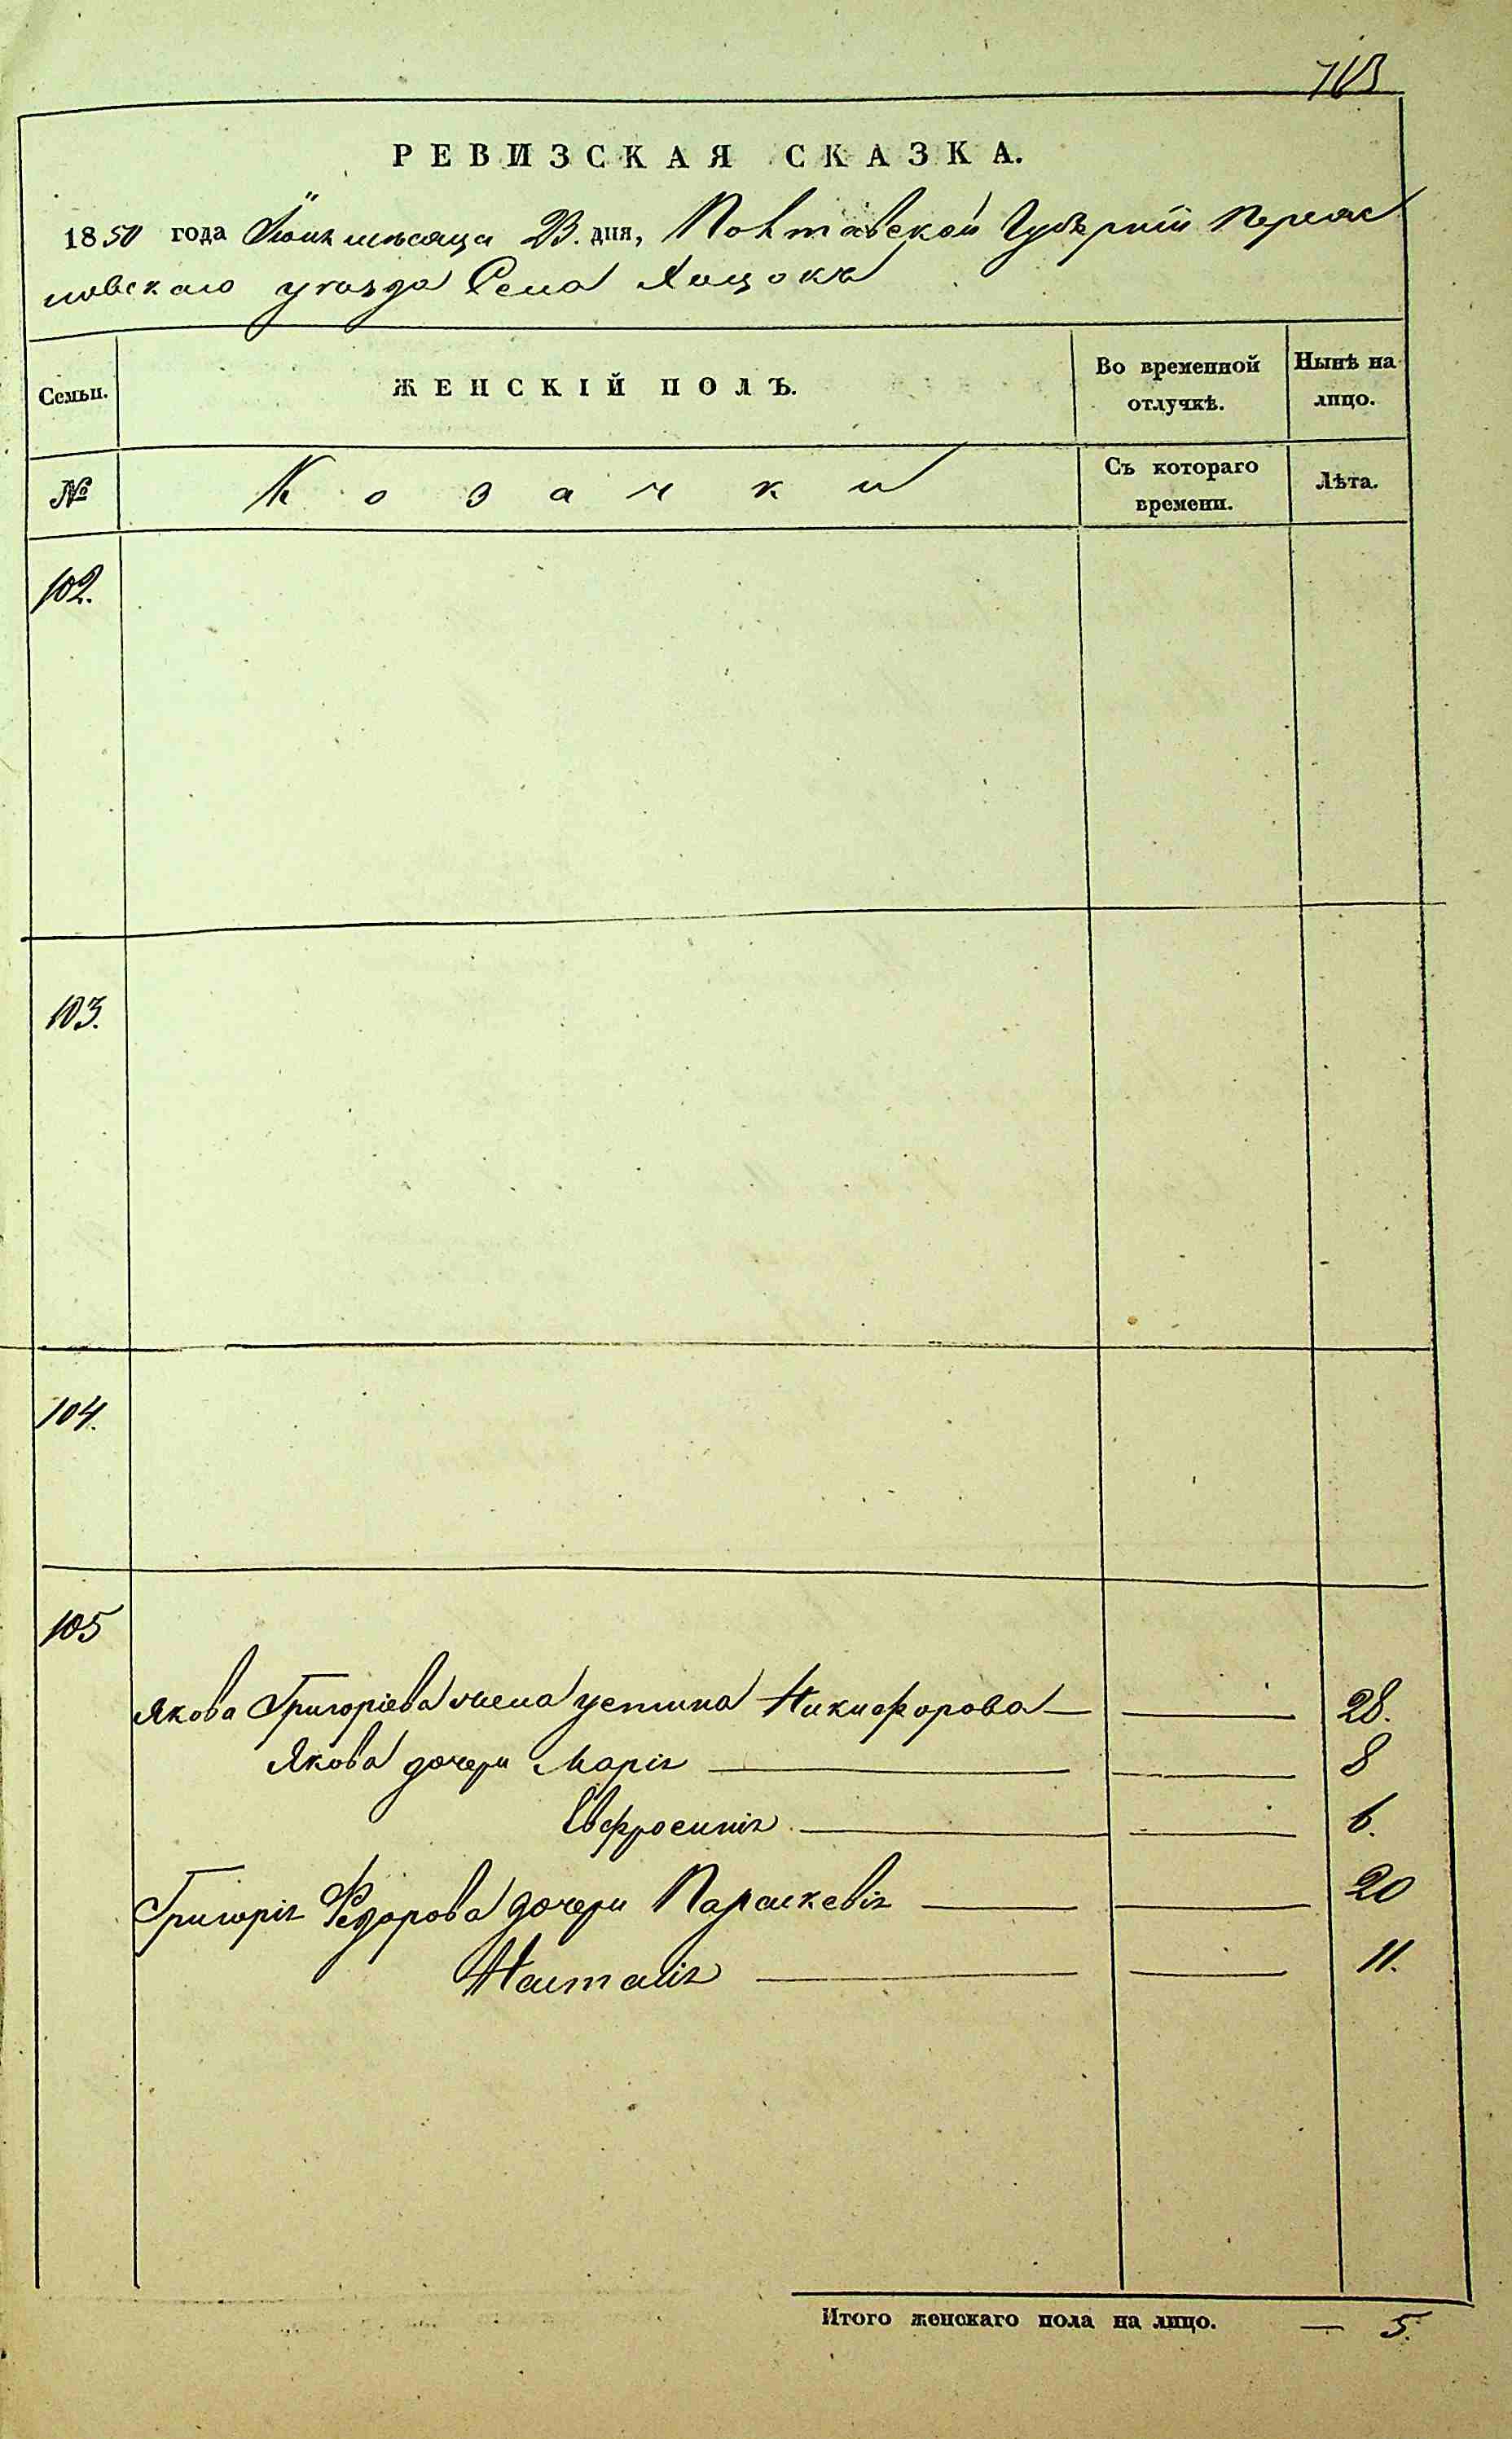 РЕВИЗСКАЯ СКАЗКА.
1850 года Іюня месяца 23. дня, Полтавской Губерніи Переяс
лавскаго уезда Села Хоцокъ
Семьи.
ЖЕНСКІЙ ПОЛЪ.
Во временной
отлучкѣ.
Нынѣ на
лицо.
№
Козачки
Съ котораго
времени.
Лѣта.
102.
103.
104.
105
Якова Григоріева жена Устина Никифорова — — 28.
Якова дочери Марія — — 8
Евфросинія — — 6.
Григорія Федорова дочери Параскевія — — 20
Наталія — — 11.
Итого женскаго пола на лицо. — 5.